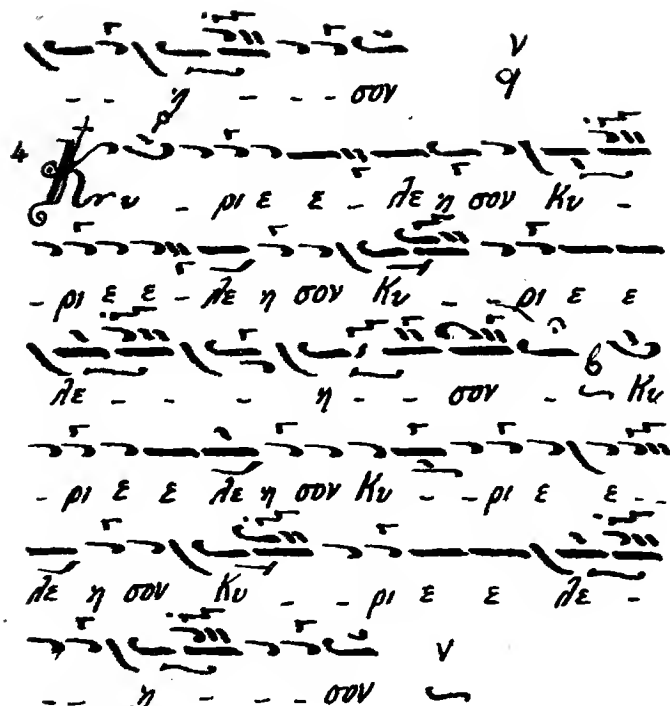 - - η - - - σον ν
4 Κυ - ρι ε ε - λε η σον Κυ -
- ρι ε ε - λε η σον Κυ - - ρι ε ε
λε - - - - η - - σον - Κυ
- ρι ε ε λε η σον Κυ - - ρι ε ε - -
λε η σον Κυ - - ρι ε ε λε -
- - η - - - σον ν